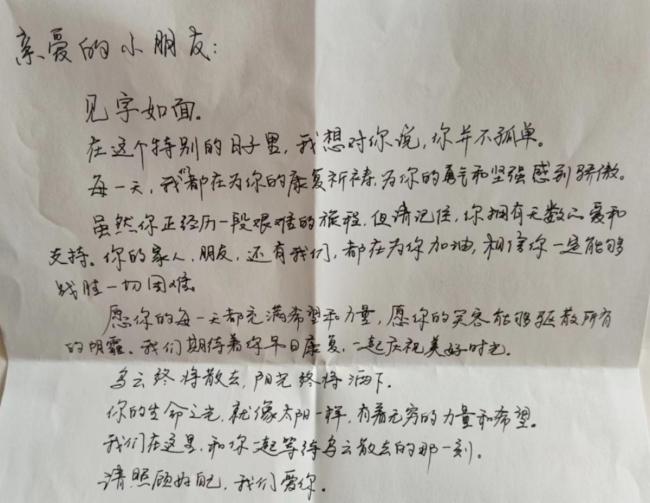 亲爱的小朋友:
见字如面。
在这个特别的日子里,我想对你说,你并不孤单。
每一天,我们都在为你的康复祈祷,为你的勇气和坚强感到骄傲。
虽然你正经历一段艰难的旅程,但请记住,你拥有无数的爱和
支持。你的家人,朋友,还有我们,都在为你加油,相信你一定能够
战胜一切困难
愿你的每一天都充满希望和力量,愿你的笑容能够驱散所有
的阴霾。我们期待着你早日康复,一起庆祝美好时光。
乌云终将散去,阳光终将洒下。
你的生命之光,就像太阳一样,有着无穷的力量和希望。
我们在这里,和你一起等待乌云散去的那一刻。
请照顾好自己,我们爱你。